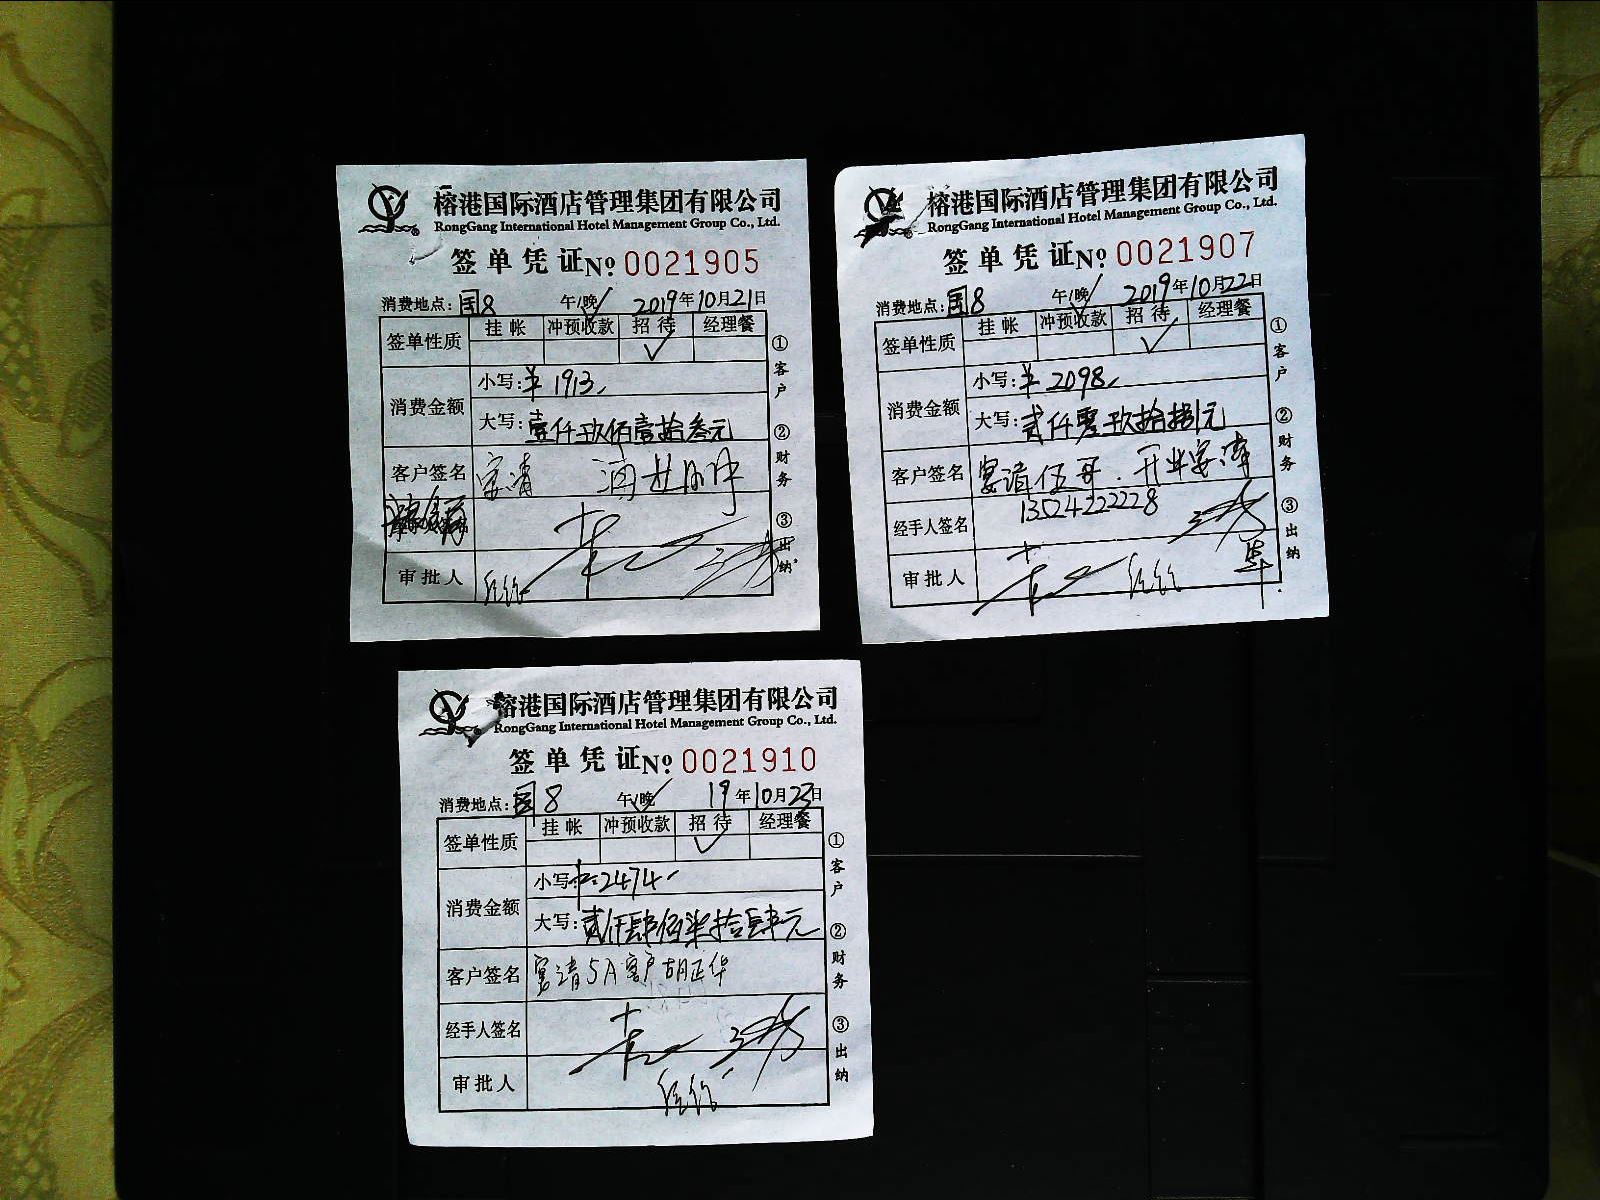 榕港国际酒店管理集团有限公司
RongGang International Hotel Management Group Co., Ltd.
签单凭证 No. 0021905
消费地点: 国8 午/晚 2019年10月21日
签单性质 挂帐 冲预收款 招待 经理餐
消费金额 小写: ¥1913
大写: 壹仟玖佰壹拾叁元
客户签名 宴请
审批人
①客户 ②财务 ③出纳
榕港国际酒店管理集团有限公司
RongGang International Hotel Management Group Co., Ltd.
签单凭证 No. 0021907
消费地点: 国8 午/晚 2019年10月22日
签单性质 挂帐 冲预收款 招待 经理餐
消费金额 小写: ¥2098
大写: 贰仟零玖拾捌元
客户签名 宴请伍哥.开业宴席
经手人签名 13524222228
审批人
①客户 ②财务 ③出纳
榕港国际酒店管理集团有限公司
RongGang International Hotel Management Group Co., Ltd.
签单凭证 No. 0021910
消费地点: 国8 午/晚 19年10月23日
签单性质 挂帐 冲预收款 招待 经理餐
消费金额 小写: 2474
大写: 贰仟肆佰柒拾肆元
客户签名 宴请5A客户胡正华
经手人签名
审批人
①客户 ②财务 ③出纳